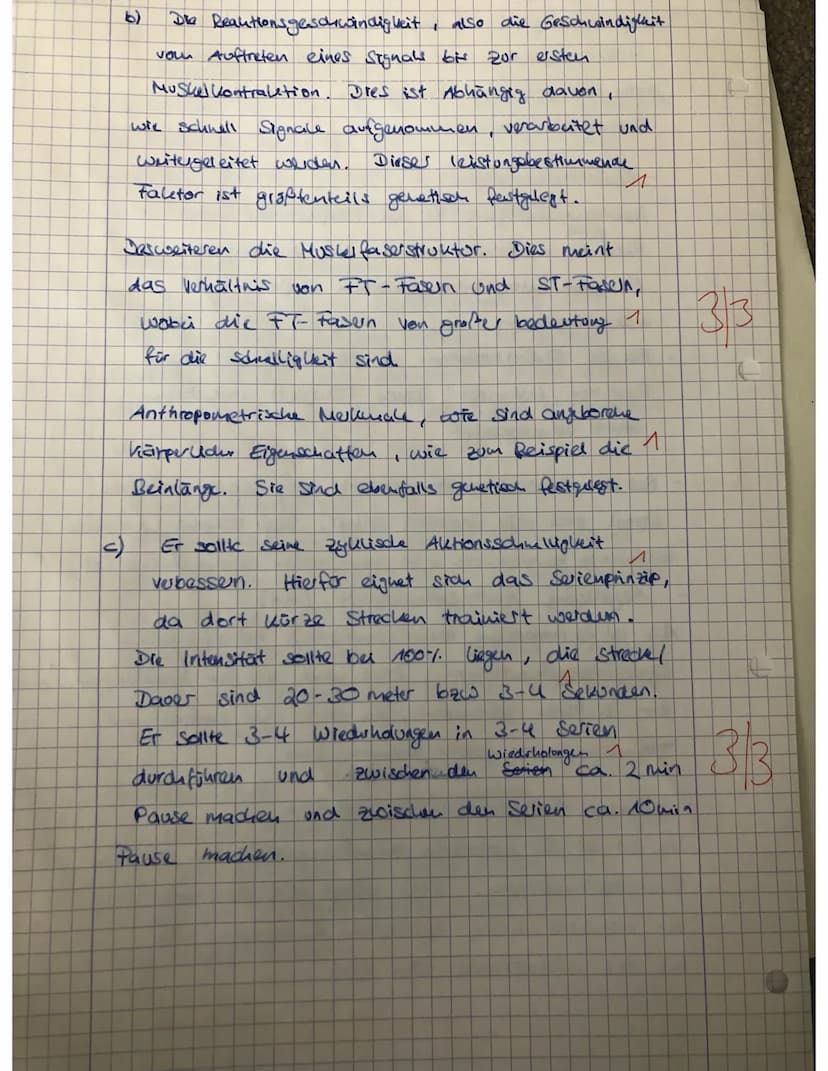 b) Die Reaktionsgeschwindigkeit, also die Geschwindigkeit
vom Auftreten eines Signals bis zur ersten
Muskelkontraktion. Dies ist Abhängig davon,
wie schnell Signale aufgenommen, verarbeitet und
weitergeleitet werden. Dieser leistungsbestimmende
Faktor ist größtenteils genetisch festgelegt. 1
Desweiteren die Muskelfaserstruktur. Dies meint
das Verhältnis von FT-Fasern und ST-Fasern,
wobei die FT-Fasern von großer bedeutung 1 3/3
für die Schnelligkeit sind
Anthropometrische Merkmale, sind angeborene
Körperliche Eigenschaften, wie zum Beispiel die 1
Beinlänge. Sie sind ebenfalls genetisch festgelegt.
c) Er sollte seine zyklische Aktionsschnelligkeit
verbessern. Hierfür eignet sich das Serienprinzip, 1
da dort kurze Strecken trainiert werden.
Die Intensität sollte bei 100% liegen, die Strecke/
Dauer sind 20-30 meter bzw 3-4 Sekunden. 1
Er sollte 3-4 Wiederholungen in 3-4 Serien
durchführen und zwischen den Serien Wiederholungen 1 ca. 2 min 3/3
Pause machen und zwischen den Serien ca. 10 min
Pause machen.